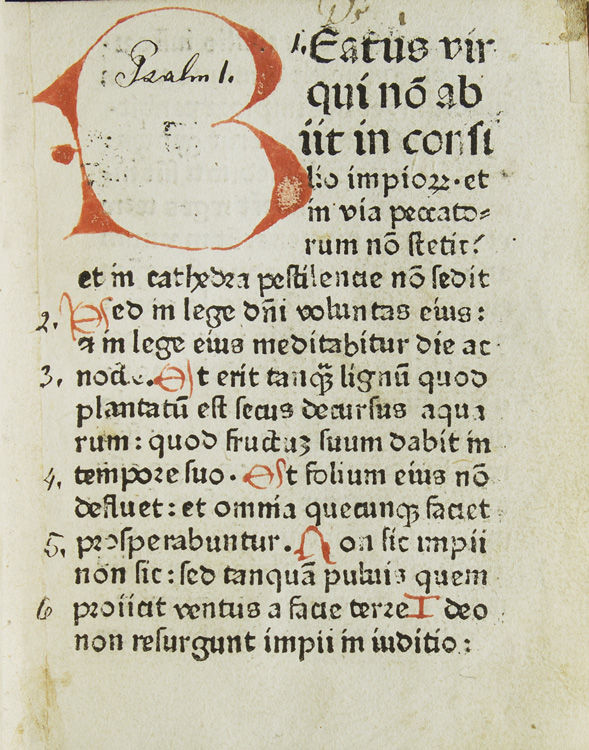 Psalm 1.
1. BEatus vir
qui nō ab
iit in consi
lio impioꝝ. et
in via peccato⸗
rum nō stetit:
et in cathedra pestilencie nō sedit
2. Sed in lege dñi voluntas eius:
⁊ in lege eius meditabitur die ac
3. nocte. Et erit tanꝙ̃ lignū quod
plantatū est secus decursus aqua
rum: quod fructuꝫ suum dabit in
4. tempore suo. Et folium eius nō
defluet: et omnia quecunqꝫ faciet
5. prosperabuntur. Non sic impii
non sic: sed tanquā puluis quem
6 proiicit ventus a facie terre I deo
non resurgunt impii in iuditio: